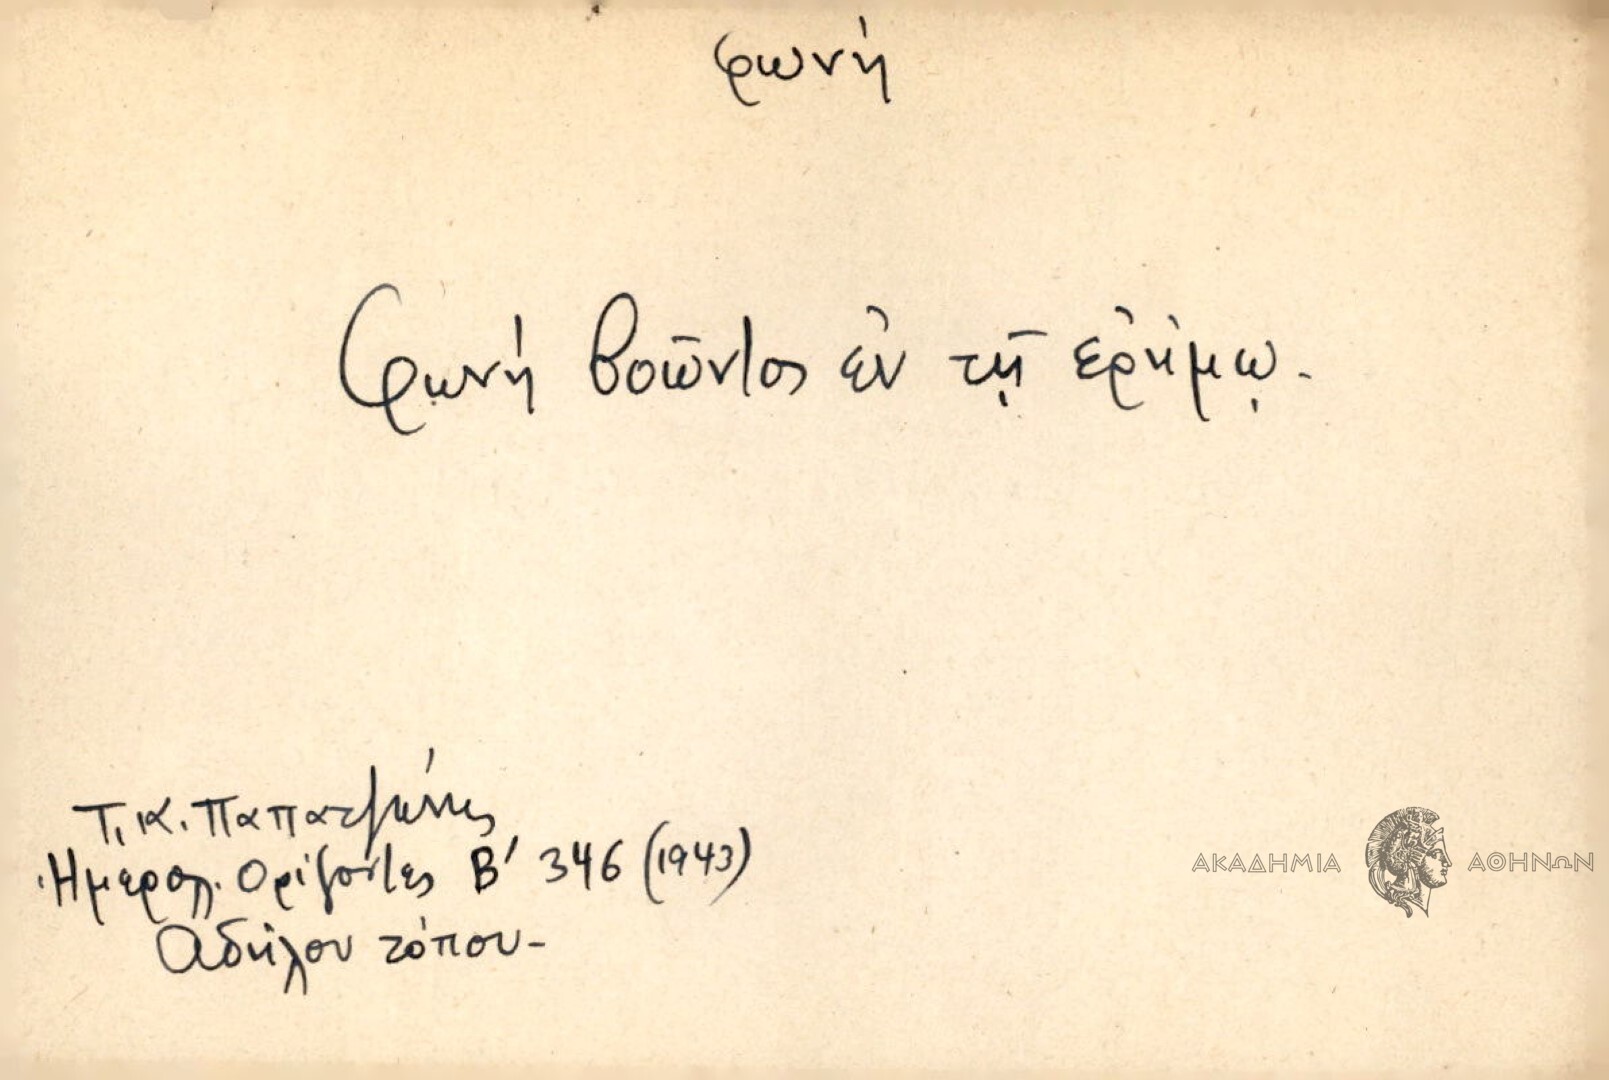 φωνή
Φωνή βοῶντος ἐν τῇ ἐρήμῳ.
Τ. Κ. Παπατζώνης
Ἡμερολ. Ορίζοντες Β' 346 (1943)
Αδήλου τόπου-
ΑΚΑΔΗΜΙΑ ΑΘΗΝΩΝ